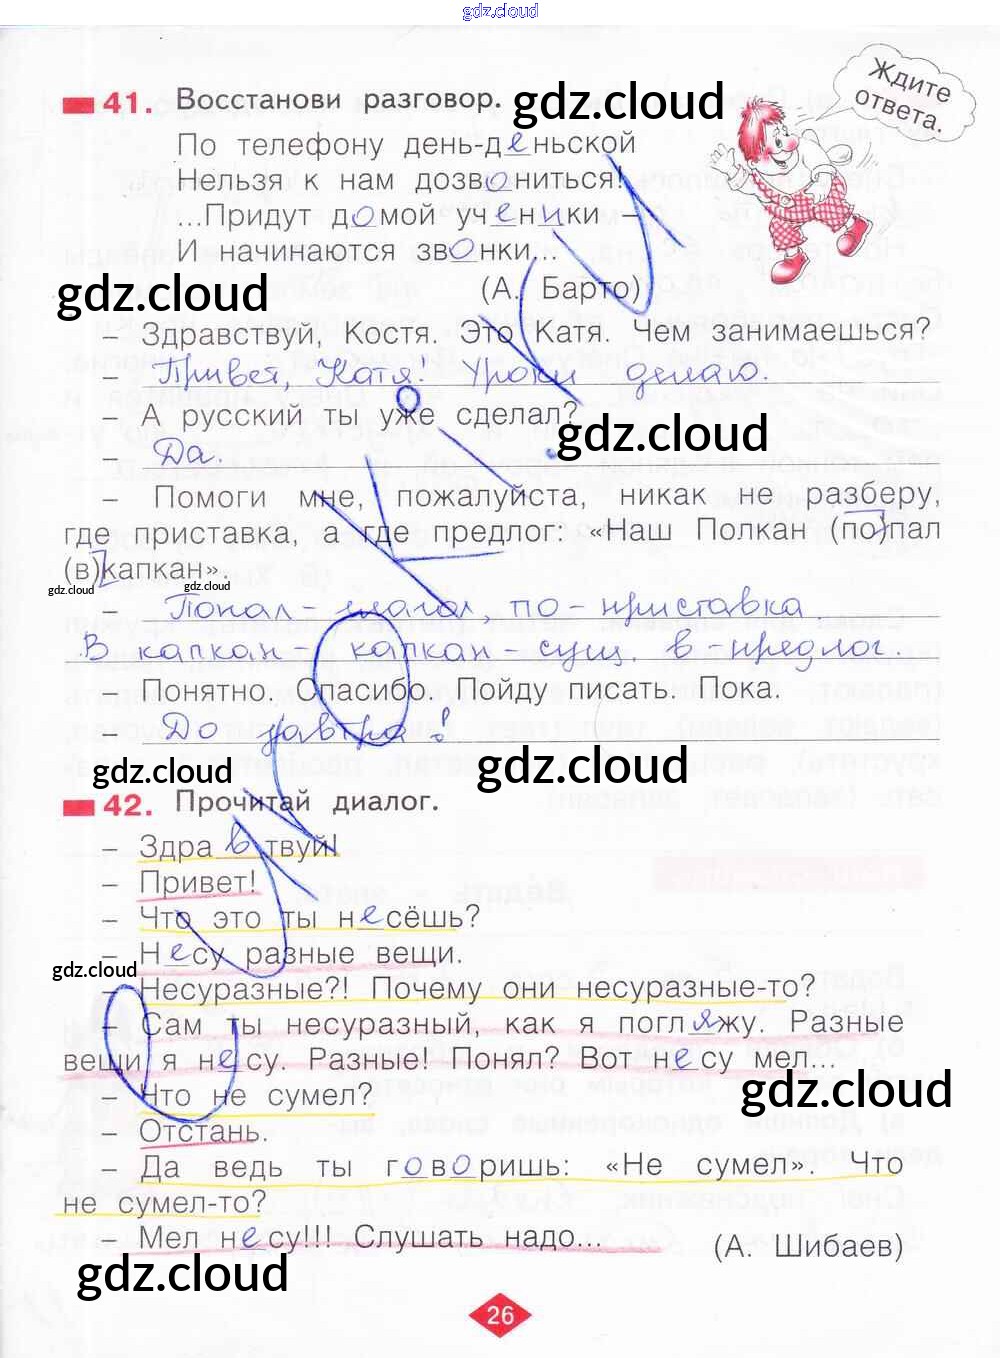 gdz.cloud
Ждите
ответа.
41. Восстанови разговор. gdz.cloud
По телефону день-деньской
Нельзя к нам дозвониться!
...Придут домой ученики –
И начинаются звонки...
gdz.cloud
(А. Барто)
– Здравствуй, Костя. Это Катя. Чем занимаешься?
– Привет, Катя. Уроки делаю.
– А русский ты уже сделал?
gdz.cloud
– Да.
– Помоги мне, пожалуйста, никак не разберу,
где приставка, а где предлог: «Наш Полкан (по)пал
(в)капкан».
gdz.cloud gdz.cloud
– Попал – глагол, по – приставка
В капкан – капкан – сущ. в – предлог
Понятно. Спасибо. Пойду писать Пока.
До завтра!
gdz.cloud gdz.cloud
42. Прочитай диалог.
– Здравствуй!
– Привет!
– Что это ты несёшь?
– Несу разные вещи.
gdz.cloud
– Несуразные?! Почему они несуразные-то?
– Сам ты несуразный, как я погляжу. Разные
вещи я несу. Разные! Понял? Вот несу мел...
– Что не сумел?
gdz.cloud
– Отстань.
– Да ведь ты говоришь: «Не сумел». Что
не сумел-то?
– Мел несу!!! Слушать надо...
(А. Шибаев)
gdz.cloud gdz.cloud
26